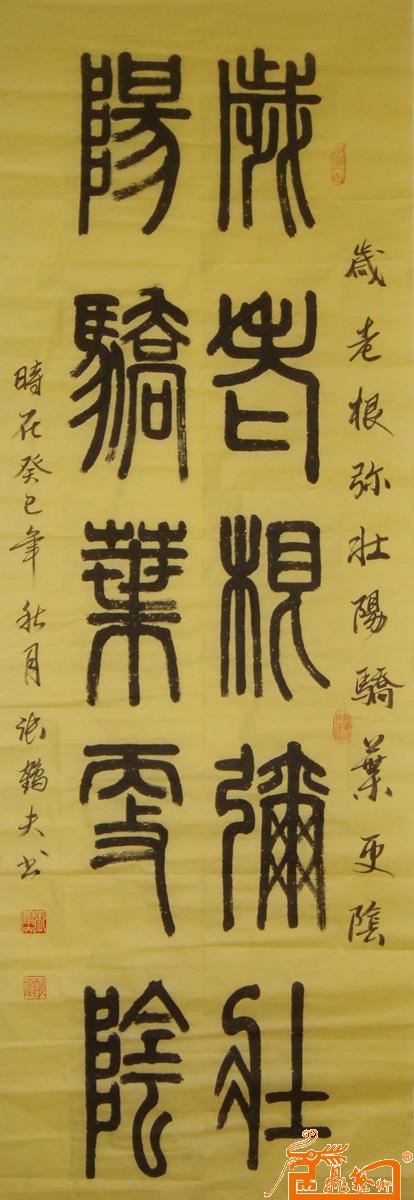 歲老根弥壯陽驕葉更陰
歲老根彌壯
陽驕葉更陰
時在癸巳年秋月張鶴夫書